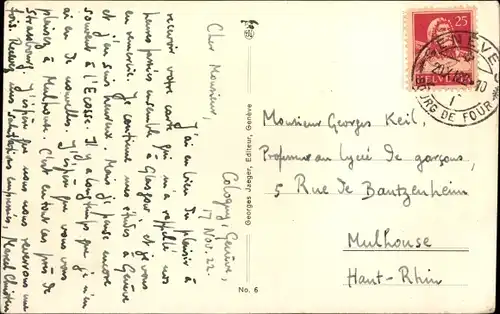 Cologny, Genève,
17 Nov. 22.
Cher Monsieur,
J'ai eu bien du plaisir à
recevoir votre carte qui m'a rappelé nos
heures passées ensemble à Glasgow, et je vous
en remercie. Je continue mes études à Genève
et j'en suis heureux. Mais je pense encore
souvent à l'Ecosse. Il y a longtemps que je n'en
ai eu de nouvelles. J'espère que vous vous
plaisez à Mulhouse. C'est en tout cas près de
Strasbourg. J'espère que nous nous reverrons une
fois. Recevez mes salutations empressées, Marcel
Georges Jaeger, Editeur, Genève
No. 6
25
HELVETIA
GENÈVE
BOURG DE FOUR
Monsieur Georges Keil,
Professeur au Lycée de garçons,
5 Rue de Bantzenheim
Mulhouse
Haut-Rhin